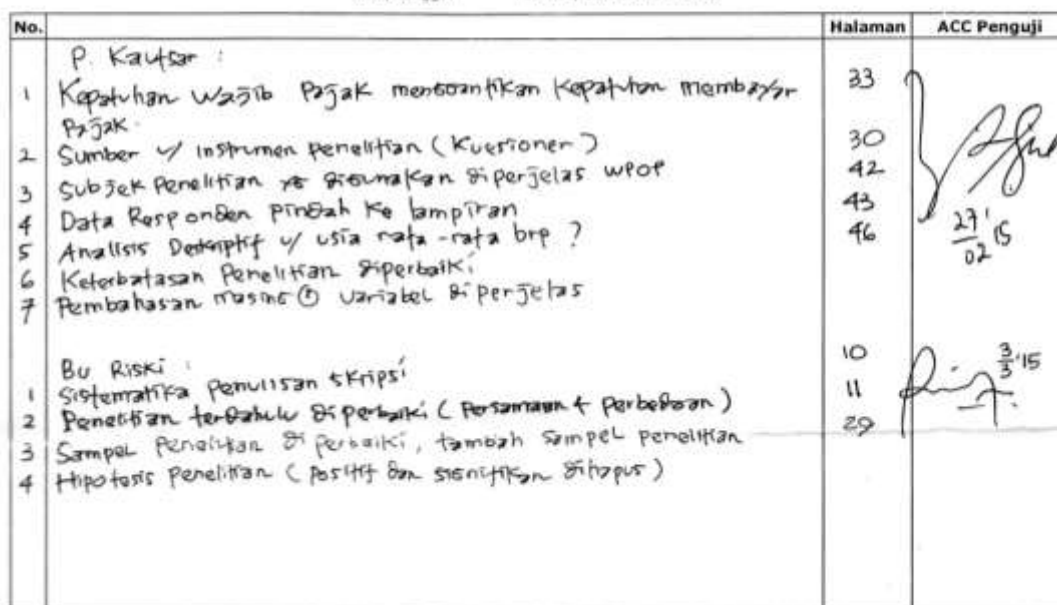 No. Halaman ACC Penguji
P. Kautsar :
1 Kepatuhan Wajib Pajak menggantikan Kepatuhan membayar 33
Pajak.
2 Sumber u/ instrumen penelitian (Kuesioner) 30
3 Subjek Penelitian yg digunakan diperjelas WPOP 42
4 Data Responden pindah ke lampiran 43
5 Analisis Deskriptif u/ usia rata-rata brp ? 46
6 Keterbatasan Penelitian diperbaiki
7 Pembahasan masing variabel diperjelas
27/02 '15
Bu Riski :
1 Sistematika penulisan skripsi 10
2 Penelitian terdahulu diperbaiki (Persamaan & perbedaan) 11
3 Sampel Penelitian diperbaiki, tambah sampel penelitian 29
4 Hipotesis Penelitian (positif dan signifikan dihapus)
3/3 '15